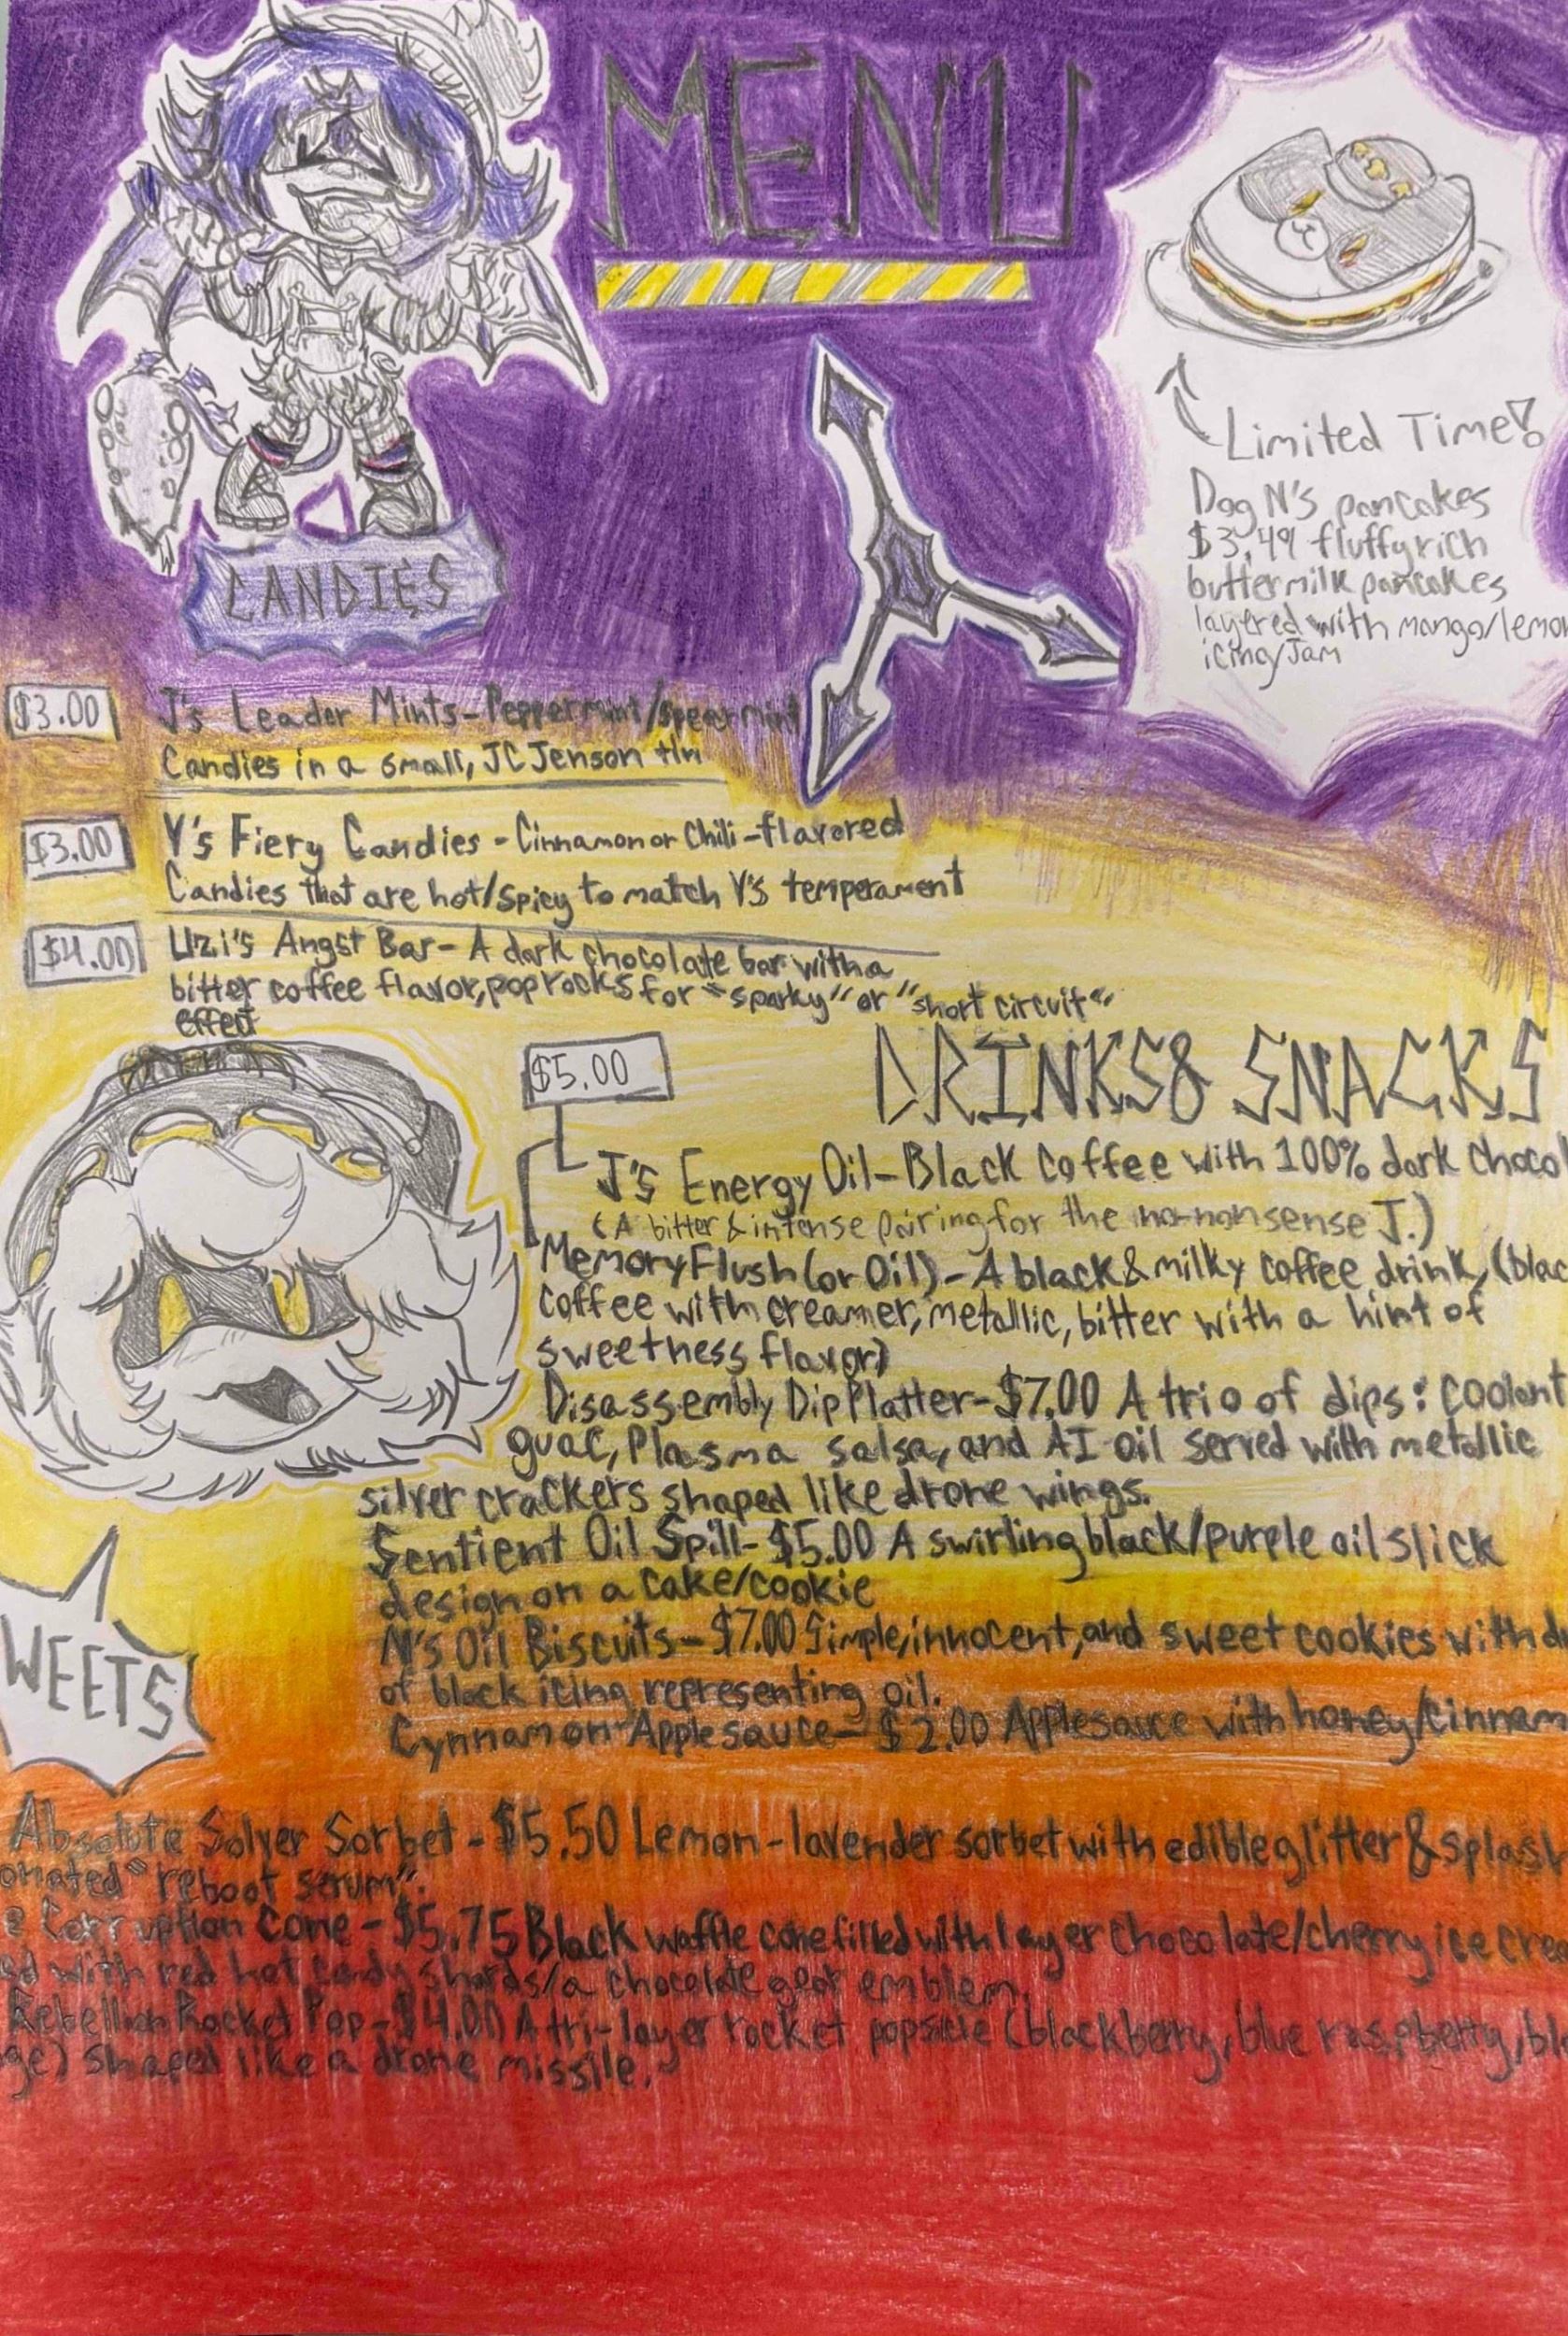 MENU
CANDIES
Limited Time!
Dog N's pancakes
$3.49 fluffy rich
buttermilk pancakes
layered with mango/lemon
icing/Jam
$3.00
J's Leader Mints-Peppermint/spearmint
Candies in a small, JCJenson tin
$3.00
V's Fiery Candies - Cinnamon or Chili-flavored
Candies that are hot/spicy to match V's temperament
$4.00
Uzi's Angst Bar- A dark chocolate bar with a
bitter coffee flavor, pop rocks for "sparky" or "short circuit"
effect
DRINKS& SNACKS
$5.00
J's Energy Oil-Black Coffee with 100% dark chocol
(A bitter & intense pairing for the no-nonsense J.)
Memory Flush (or Oil) - A black & milky coffee drink, (blac
coffee with creamer, metallic, bitter with a hint of
sweetness flavor)
Disassembly Dip Platter-$7.00 A trio of dips: Coolant
guac, Plasma salsa, and AI oil served with metallic
silver crackers shaped like drone wings.
Sentient Oil Spill- $5.00 A swirling black/purple oil slick
design on a cake/cookie
N's Oil Biscuits - $7.00 Simple, innocent, and sweet cookies with d
of black icing representing oil.
Cynnamon-Applesauce- $2.00 Applesauce with honey/cinnam
WEETS
Absolute Solver Sorbet - $5.50 Lemon-lavender sorbet with edible glitter & splash
onated "reboot serum".
e Corruption Cone - $5.75 Black waffle cone filled with layer chocolate/cherry ice crea
ed with red hot candy shards/a chocolate gear emblem.
Rebellion Rocket Pop-$4.00 A tri-layer rocket popsicle (blackberry, blue raspberry, bl
ge) shaped like a drone missile.